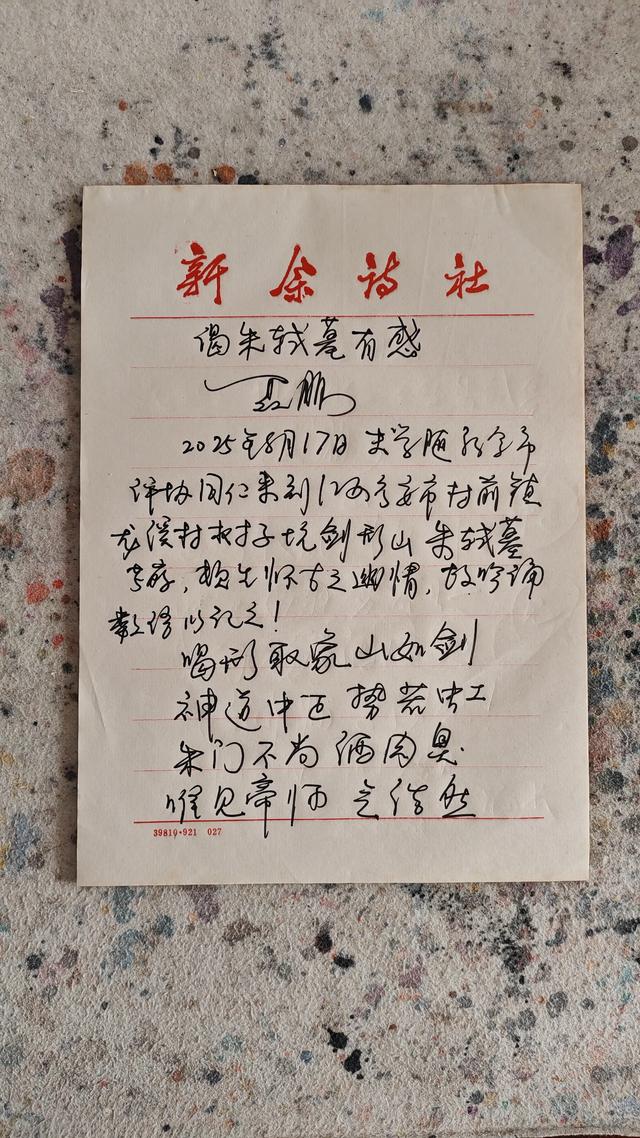 新余诗社
谒朱轼墓有感
鹏
2025年8月17日 末学随新余市
评协同仁来到江西高安市村前镇
龙溪村村子坑剑形山朱轼墓
考察，顿生怀古之幽情，故吟诵
数语以记之！
喝形取象山如剑
神道中正势若虹
朱门不尚酒肉臭
唯见帝师气浩然
39810·921 027